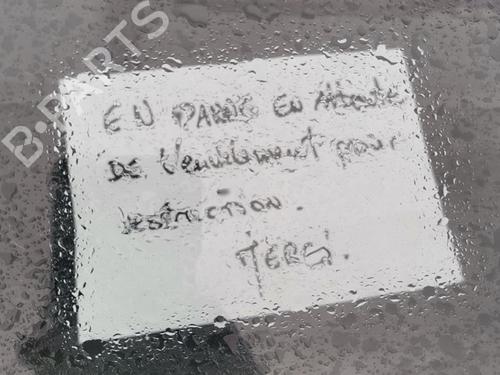 B-PARTS
EN PANNE EN Attente
DE
pour
destruction.
MERCI.